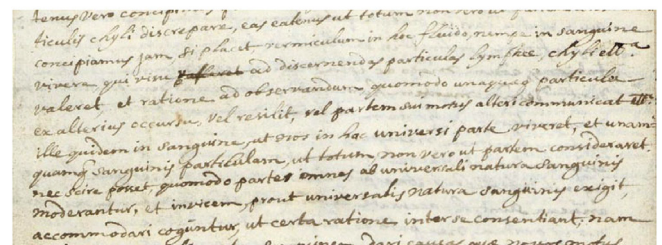 tenus vero concipi
ticulis chyli discrepare, eas eatenus ut totum non vero ut
concipiamus jam, si placet, vermiculum in hoc fluido, nempe in sanguine
vivere, qui visu ad discernendas particulas lymphæ, chyli etc.
valeret et ratione ad observandum, quomodo unaquæq particula
ex alterius occursu, vel resilit, vel partem sui motus alteri communicat etc.
ille quidem in sanguine, ut nos in hac universi parte, viveret, et unam
quamq sanguinis particulam, ut totum, non vero ut partem consideraret,
nec scire posset, quomodo partes omnes ab universali natura sanguinis
moderantur, et invicem, prout universalis natura sanguinis exigit,
accommodari coguntur, ut certa ratione inter se consentiant, nam
dari causas quæ novos motus